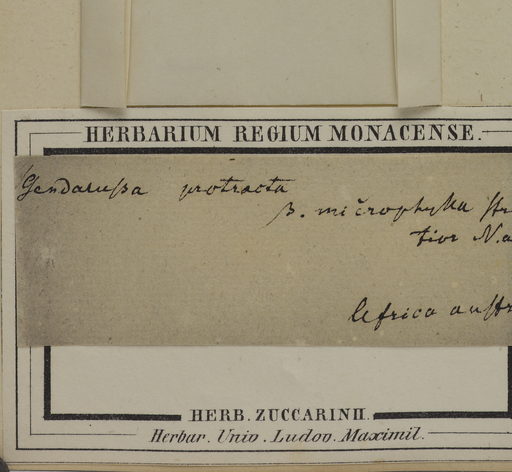 HERBARIUM REGIUM MONACENSE.
Gendarußa protracta
β. microphylla
tior N.
Africa austr
HERB. ZUCCARINII.
Herbar. Univ. Ludov. Maximil.